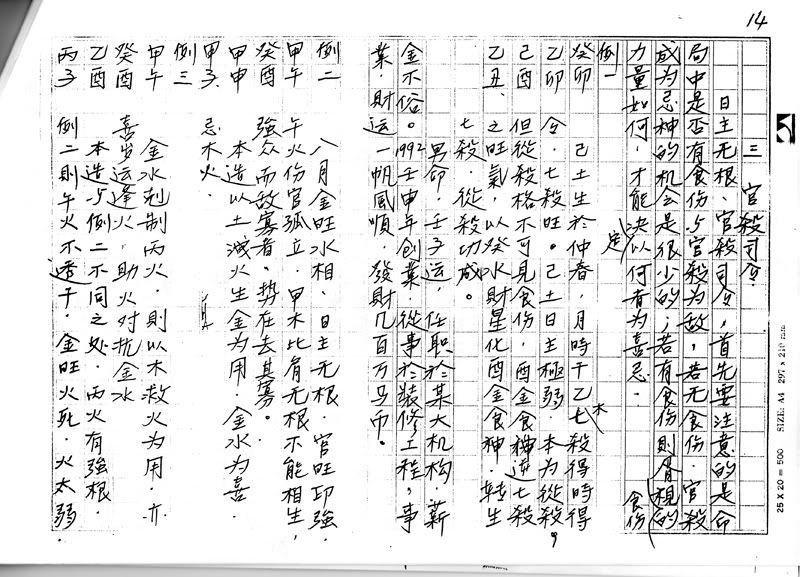 14
三 官殺司令
日主无根、官殺司令，首先要注意的是命
局中是否有食伤与官殺为敌，若无食伤．官殺
成为忌神的机会是很少的；若有食伤則得視食伤的
力量如何．才能決定以何者为喜忌．
例一
癸卯 己土生於仲春，月時干乙木七殺得時得
乙卯 令．七殺旺。己土日主極弱．本为從殺，
己酉 但從殺格不可見食伤，酉金食神逆七殺
乙丑 之旺氣，以癸水財星化酉金食神．轉生
七殺．從殺功成。
男命．壬子运．任職於某大机构．薪
金不俗。1992壬申年创業．從事於裝修工程，事
業．財运一帆風順．發財几百万马币。
例二 八月金旺水相．日主无根．官旺印強．
甲午 午火伤官孤立．甲木比肩无根不能相生，
癸酉 強众而敌寡者．势在去其寡。
甲申 本造以土洩火生金为用．金水为喜．
甲子 忌木火．
例三
甲午 金水剋制丙火．則以木救火为用．亦
癸酉 喜岁运逢火．助火对抗金水
乙酉 本造与例二不同之处．丙火有強根．
丙子 例二則午火不透干．金旺火死．火太弱．
25 X 20 = 500 SIZE: A4 297 x 210 mm